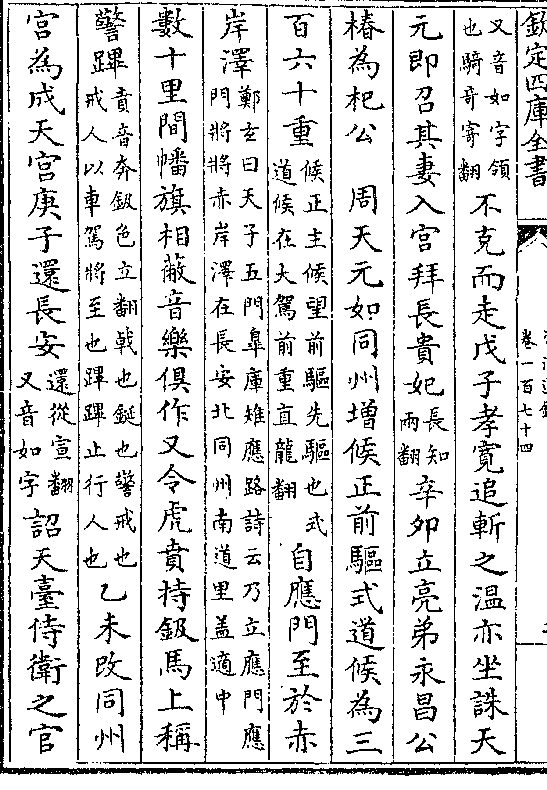 欽定四庫全書
卷一百七十四
又音如字領
也騎奇寄翻
不克而走戊子孝寛追斬之温亦坐誅天
元即召其妻入宮拜長貴妃
長知
兩翻
辛夘立亮弟永昌公
椿為杞公　周天元如同州增候正前驅式道候為三
百六十重
候正主候望前驅先驅也式
道候在大駕前重直龍翻
自應門至於赤
岸澤
鄭𤣥曰天子五門臯庫雉應路詩云乃立應門應
門將將赤岸澤在長安北同州南道里盖適中
數十里間幡旗相蔽音樂俱作又令虎賁持鈒馬上稱
警蹕
賁音奔鈒色立翻戟也鋋也警戒也
戒人以車駕將至也蹕蹕止行人也
乙未改同州
宮為成天宫庚子還長安
還從宣翻
又音如字
詔天臺侍衛之官